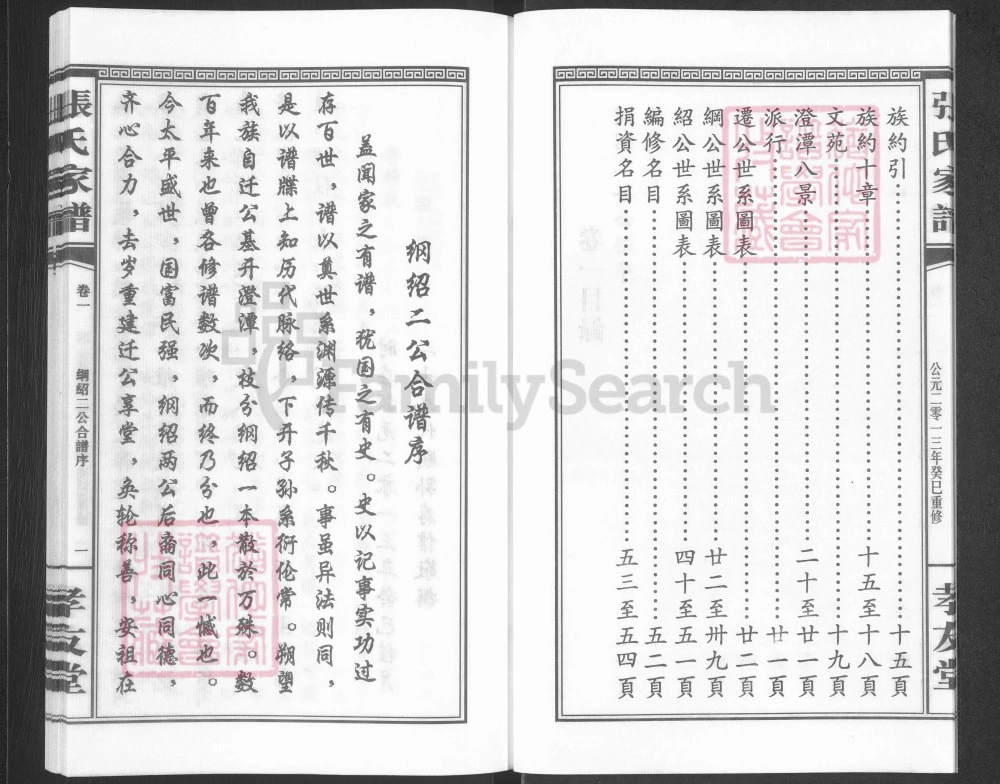 張氏家譜
公元二零一三年癸巳重修
孝友堂
族約引……十五頁
族約十章……十五至十八頁
文苑……十九頁
澄潭八景……二十至廿一頁
派行……廿一頁
遷公世系圖表……廿二頁
綱公世系圖表……廿二至卅九頁
紹公世系圖表……四十至五一頁
編修名目……五二頁
捐資名目……五三至五四頁
纲绍二公合谱序
盖闻家之有谱，犹国之有史。史以记事实功过
存百世，谱以奠世系渊源传千秋。事虽异法则同，
是以谱牒上知历代脉络，下开子孙系衍伦常。朔望
我族自迁公基开澄潭，枝分纲绍一本散於万殊。数
百年来也曾各修谱数次，而终乃分也，此一憾也。
今太平盛世，国富民强，纲绍两公后裔同心同德，
齐心合力，去岁重建迁公享堂，奂轮称善，安祖在
張氏家譜
卷一
綱紹二公合譜序
一
孝友堂
FamilySearch